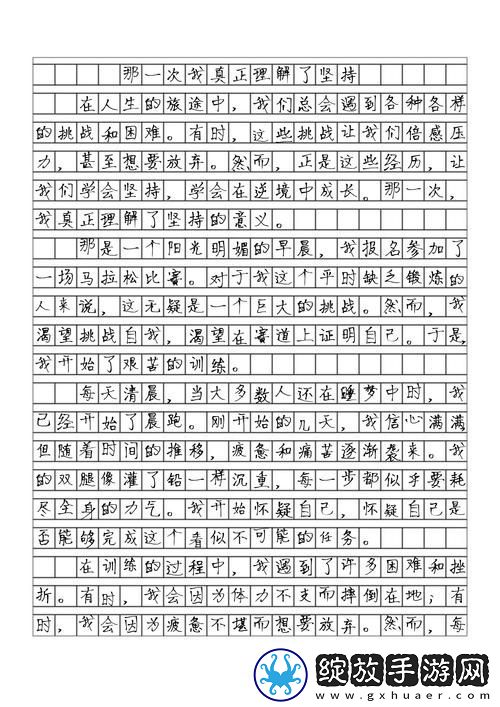 那一次我真正理解了坚持
在人生的旅途中，我们总会遇到各种各样
的挑战和困难。有时，这些挑战让我们倍感压
力，甚至想要放弃。然而，正是这些经历，让
我们学会坚持，学会在逆境中成长。那一次，
我真正理解了坚持的意义。
那是一个阳光明媚的早晨，我报名参加了
一场马拉松比赛。对于我这个平时缺乏锻炼的
人来说，这无疑是一个巨大的挑战。然而，我
渴望挑战自我，渴望在赛道上证明自己。于是，
我开始了艰苦的训练。
每天清晨，当大多数人还在睡梦中时，我
已经开始了晨跑。刚开始的几天，我信心满满，
但随着时间的推移，疲惫和痛苦逐渐袭来。我
的双腿像灌了铅一样沉重，每一步都似乎要耗
尽全身的力气。我开始怀疑自己，怀疑自己是
否能够完成这个看似不可能的任务。
在训练的过程中，我遇到了许多困难和挫
折。有时，我会因为体力不支而摔倒在地；有
时，我会因为疲惫不堪而想要放弃。然而，每
绽放手游网
www.gxhuaer.com